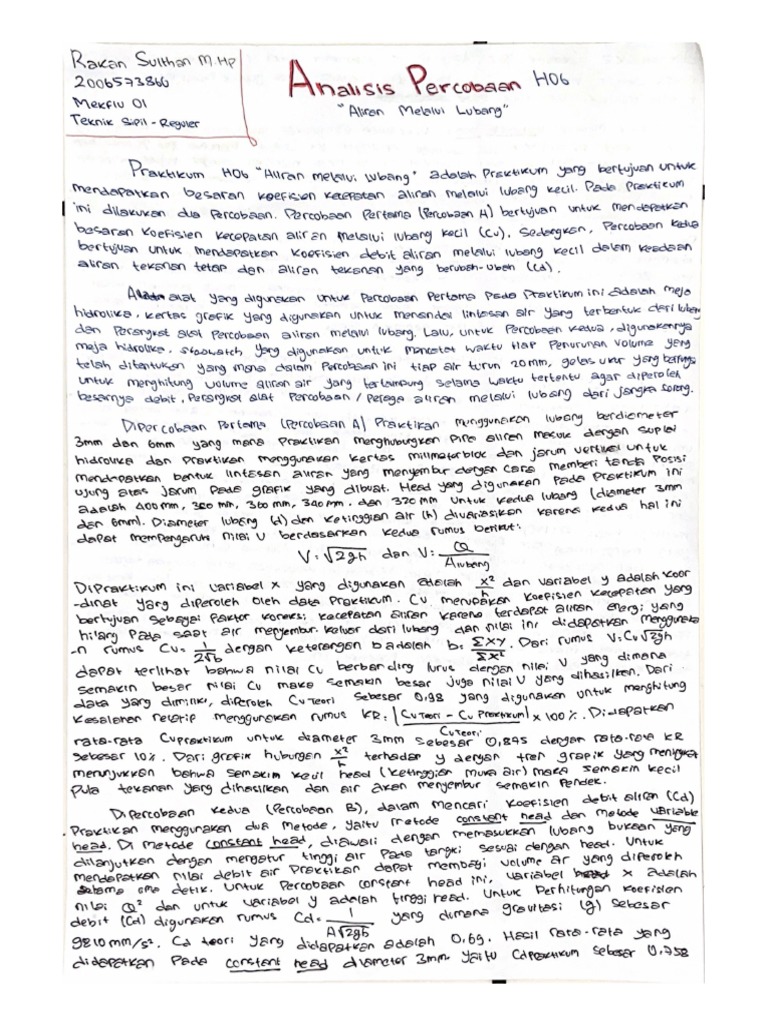 Rakan Sulthan M.HP
2006573866
Mekflu 01
Teknik Sipil - Reguler
Analisis Percobaan H06
"Aliran Melalui Lubang"
Praktikum H06 "Aliran melalui lubang" adalah Praktikum yang bertujuan untuk
mendapatkan besaran koefisien kecepatan aliran melalui lubang kecil. Pada Praktikum
ini dilakukan dua Percobaan. Percobaan Pertama (Percobaan A) bertujuan untuk mendapatkan
besaran koefisien kecepatan aliran melalui lubang kecil (Cv). Sedangkan, Percobaan kedua
bertujuan untuk mendapatkan koefisien debit aliran melalui lubang kecil dalam keadaan
aliran tekanan tetap dan aliran tekanan yang berubah-ubah (Cd).
alat yang digunakan untuk Percobaan Pertama Pada Praktikum ini adalah meja
hidrolika, kertas grafik yang digunakan untuk menandai lintasan air yang terbentuk dari
dan Perangkat alat Percobaan aliran melalui lubang. Lalu, untuk Percobaan kedua, digunakannya
meja hidrolika, stopwatch yang digunakan untuk mencatat waktu tiap Penurunan volume yang
telah ditentukan yang mana dalam Percobaan ini tiap air turun 20mm, gelas ukur yang berguna
untuk menghitung volume aliran air yang tertampung selama waktu tertentu agar diperoleh
besarnya debit, Perangkat alat Percobaan / Peraga aliran melalui lubang dari jangka sorong.
Dipercobaan Pertama (Percobaan A) Praktikan menggunakan lubang berdiameter
3mm dan 6mm yang mana Praktikan menghubungkan Pipa aliran masuk dengan suplai
hidrolika dan Praktikan menggunakan kertas millimeterblok dan jarum vertikal untuk
mendapatkan bentuk lintasan aliran yang menyembur dengan cara memberi tanda Posisi
ujung atas jarum Pada grafik yang dibuat. Head yang digunakan Pada Praktikum ini
adalah 400mm, 380 mm, 360 mm, 340 mm, dan 320 mm untuk kedua lubang (diameter 3mm
dan 6mm). Diameter lubang (d) dan ketinggian air (h) divariasikan karena kedua hal ini
dapat mempengaruhi nilai V berdasarkan kedua rumus berikut:
V = √2gh dan V = Q/A lubang
DiPraktikum ini variabel x yang digunakan adalah x²/h dan variabel y adalah koor
-dinat yang diperoleh oleh data Praktikum. Cv merupakan koefisien kecepatan yang
bertujuan sebagai faktor koreksi kecepatan aliran karena terdapat aliran energi yang
hilang Pada saat air menyembur keluar dari lubang dan nilai ini didapatkan menggunaka
-n rumus Cv = 1/2√b dengan keterangan b adalah b = ΣXY/ΣX². Dari rumus V = Cv√2gh
dapat terlihat bahwa nilai Cv berbanding lurus dengan nilai V yang dimana
semakin besar nilai Cv maka semakin besar juga nilai V yang dihasilkan. Dari
data yang dimiliki, diperoleh Cv teori sebesar 0,98 yang digunakan untuk menghitung
kesalahan relatif menggunakan rumus KR = |Cv teori - Cv Praktikum / Cv teori| x 100%. Didapatkan
rata-rata Cv praktikum untuk diameter 3mm sebesar 0,845 dengan rata-rata KR
sebesar 10%. Dari grafik hubungan x²/h terhadap y dengan tren grafik yang meningkat
menunjukkan bahwa semakin kecil head (ketinggian muka air) maka semakin kecil
pula tekanan yang dihasilkan dan air akan menyembur semakin Pendek.
Dipercobaan kedua (Percobaan B), dalam mencari koefisien debit aliran (Cd)
Praktikan menggunakan dua metode, yaitu metode constant head dan metode variable
head. Di metode constant head, diawali dengan memasukkan lubang bukaan yang
dilanjutkan dengan mengatur tinggi air Pada tangki sesuai dengan head. Untuk
mendapatkan nilai debit air Praktikan dapat membagi volume air yang diperoleh
selama detik. Untuk Percobaan constant head ini, variabel x adalah
nilai Q² dan untuk variabel y adalah tinggi head. Untuk Perhitungan koefisien
debit (Cd) digunakan rumus Cd = 1/A√2gb yang dimana gravitasi (g) sebesar
9810 mm/s². Cd teori yang didapatkan adalah 0,69. Hasil rata-rata yang
didapatkan Pada constant head diameter 3mm yaitu Cd praktikum sebesar 0,758